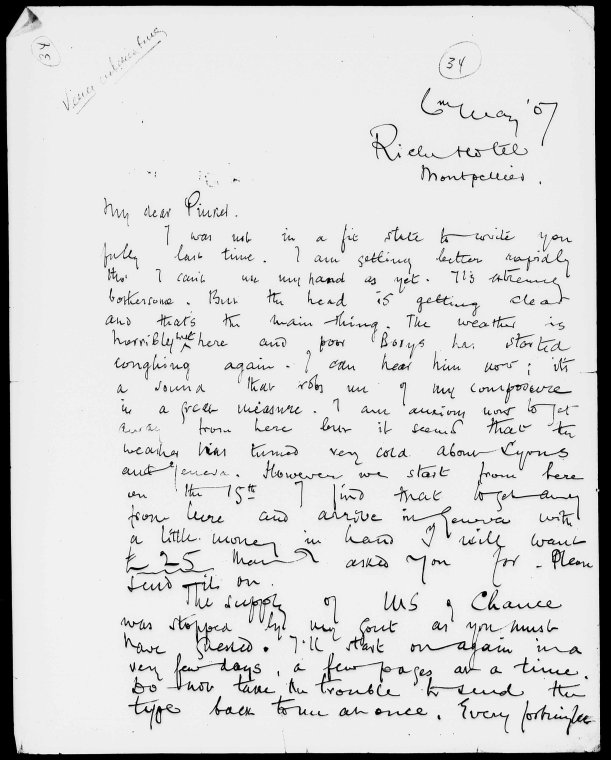 34
Very interesting
34
6th May '07
Riche Hotel
Montpellier.
My dear Pinker.
I was not in a fit state to write you
fully last time. I am getting better rapidly
tho' I can't use my hand as yet. It's extremely
bothersome. But the head is getting clear
and that's the main thing. The weather is
horribly wet here and poor Borys has started
coughing again. I can hear him now; it's
a sound that robs me of my composure
in a great measure. I am anxious now to get
away from here but it seems that the
weather has turned very cold about Lyons
and Geneva. However we start from here
on the 15th. I find that to get away
from here and arrive in Geneva with
a little money in hand I will want
£25 than I asked you for. Please
send this on.
The supply of MS of Chance
was stopped by my gout as you must
have guessed. I'll start on again in a
very few days, a few pages at a time.
Do not take the trouble to send the
type back to me at once. Every fortnight